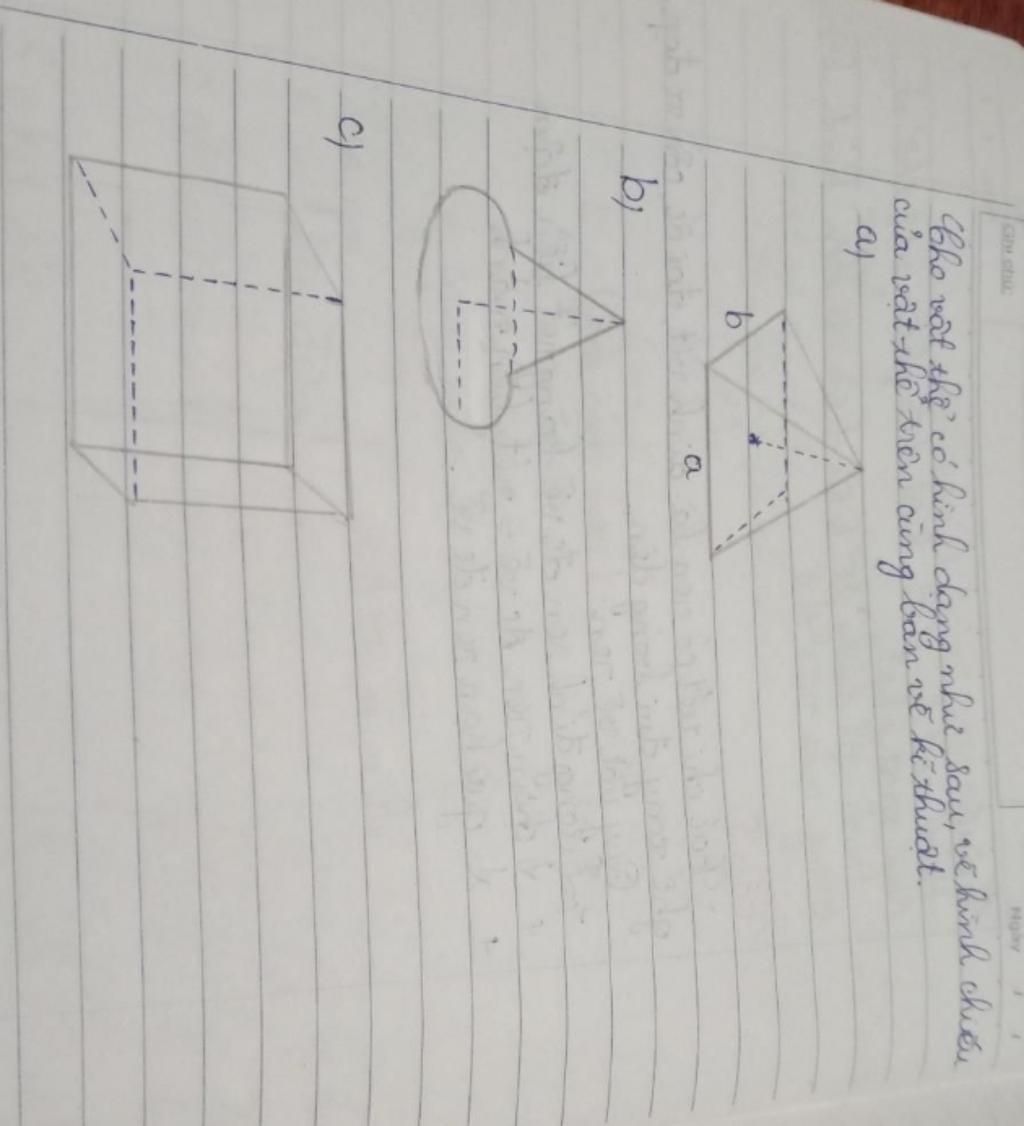 Ghi chú:
Ngày / /
Cho vật thể có hình dạng như sau, vẽ hình chiếu
của vật thể trên cùng bản vẽ kĩ thuật.
a)
b
a
b)
c)